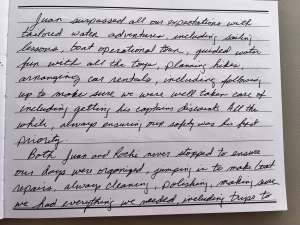 Juan surpassed all our expectations with
tailored water adventures including sailing
lessons, boat operational tour, guided water
fun with all the toys, planning hikes,
arranging car rentals, including following
up to make sure we were well taken care of
including getting his captains discounts. All the
while, always ensuring our safety was his first
priority.
Both Juan and Roche never stopped to ensure
our days were organized, jumping in to make boat
repairs, always cleaning, polishing, making sure
we had everything we needed, including trips to